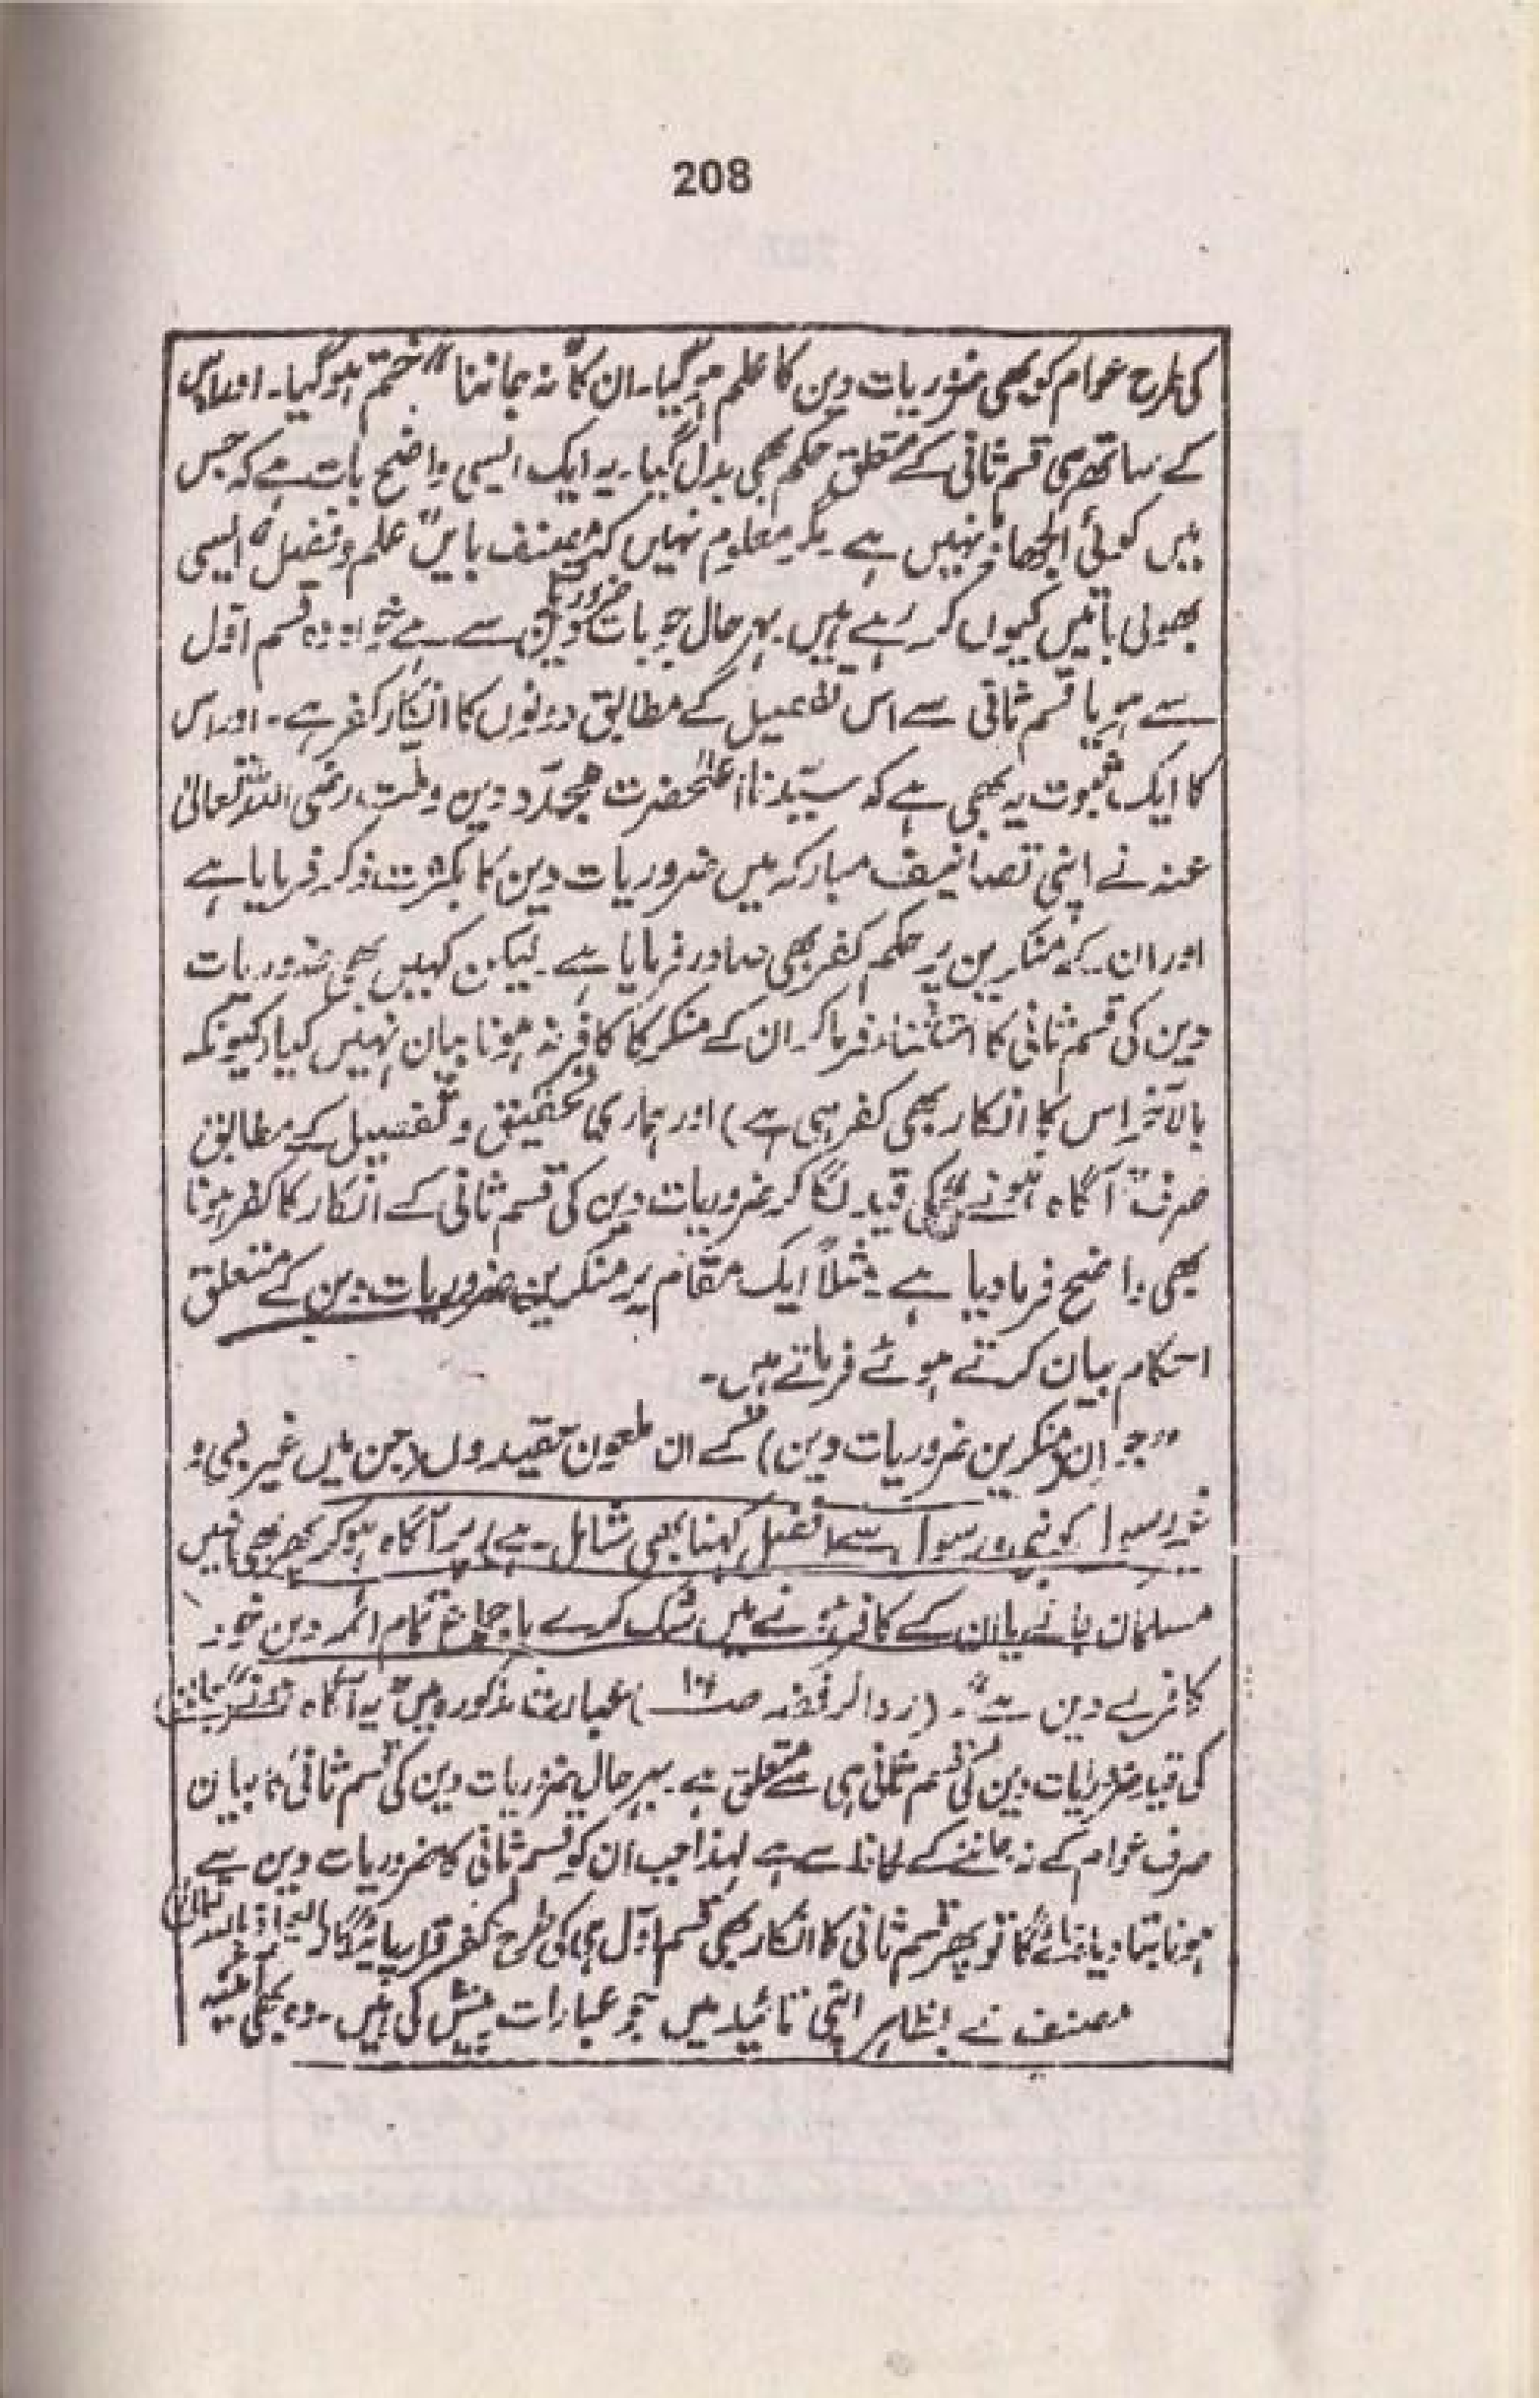 208
کی طرح عوام کو بھی ضروریات دین کا علم ہو گیا۔ ان کا "نہ جاننا" ختم ہو گیا۔ اور اس
کے ساتھ ہی قسم ثانی کے متعلق حکم بھی بدل گیا۔ یہ ایک ایسی واضح بات ہے کہ جس
میں کوئی الجھاؤ نہیں ہے۔ مگر معلوم نہیں کہ مصنف بایں علم و فضل ایسی
بھولی باتیں کیوں کر رہے ہیں۔ بہر حال جو بات ضروریات دین سے ہے خواہ وہ قسم اول
سے ہو یا قسم ثانی سے اس تفصیل کے مطابق دونوں کا انکار کفر ہے۔ اور اس
کا ایک ثبوت یہ بھی ہے کہ سیّدنا اعلیٰحضرت مجدّد دین و ملت رضی اللہ تعالیٰ
عنہ نے اپنی تصانیف مبارکہ میں ضروریات دین کا بکثرت ذکر فرمایا ہے
اور ان کے منکرین پر حکم کفر بھی صادر فرمایا ہے۔ لیکن کہیں بھی ضروریات
دین کی قسم ثانی کا استثناء فرما کر ان کے منکر کا کافر نہ ہونا بیان نہیں کیا (کیونکہ
بالآخر اس کا انکار بھی کفر ہی ہے) اور ہماری تحقیق و تفصیل کے مطابق
صرف "آگاہ ہونے" کی قید لگا کر ضروریات دین کی قسم ثانی کے انکار کا کفر ہونا
بھی واضح فرما دیا ہے۔ مثلاً ایک مقام پر منکرین ضروریات دین کے متعلق
احکام بیان کرتے ہوئے فرماتے ہیں۔
"جو ان (منکرین ضروریات دین) کے ان ملعون عقیدوں (جن میں غیر نبی و
غیر رسول کو نبی و رسول سے افضل کہنا بھی شامل ہے) پر آگاہ ہو کر پھر بھی انہیں
مسلمان جانے یا ان کے کافر ہونے میں شک کرے باجماع تمام ائمہ دین خود
کافر بے دین ہے"۔ (رد الرفضہ صـ) عبارت مذکورہ میں "آگاہ ہونے"
کی قید ضروریات دین کی قسم ثانی ہی سے متعلق ہے۔ بہر حال ضروریات دین کی قسم ثانی کا بیان
صرف عوام کے نہ جاننے کے لحاظ سے ہے لہذا جب ان کو قسم ثانی کا ضروریات دین سے
ہونا بتا دیا جائے گا تو پھر قسم ثانی کا انکار بھی قسم اول ہی کی طرح کفر قرار پائیگا والعیاذ باللہ تعالیٰ
مصنف نے بظاہر اپنی تائید میں جو عبارات پیش کی ہیں۔ وہ بھی